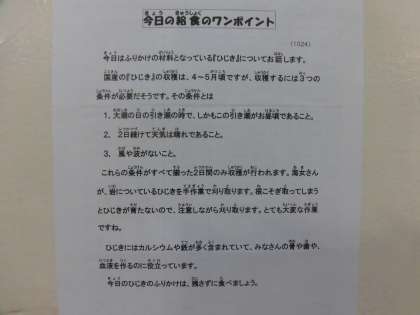 今日の給食のワンポイント
(1024)
今日はふりかけの材料となっている『ひじき』についてお話します。
国産の『ひじき』の収穫は、4～5月頃ですが、収穫するには3つの
条件が必要だそうです。その条件とは
1. 大潮の日の引き潮の時で、しかもこの引き潮がお昼頃であること。
2. 2日続けて天気は晴れであること。
3. 風や波がないこと。
これらの条件がすべて揃った2日間のみ収穫が行われます。海女さん
が、岩についているひじきを手作業で刈り取ります。根こそぎ取ってしまう
とひじきが育たないので、注意しながら刈り取ります。とても大変な作業
ですね。
ひじきにはカルシウムや鉄が多く含まれていて、みなさんの骨や歯や、
血液を作るのに役立っています。
今日のひじきのふりかけは、残さずに食べましょう。